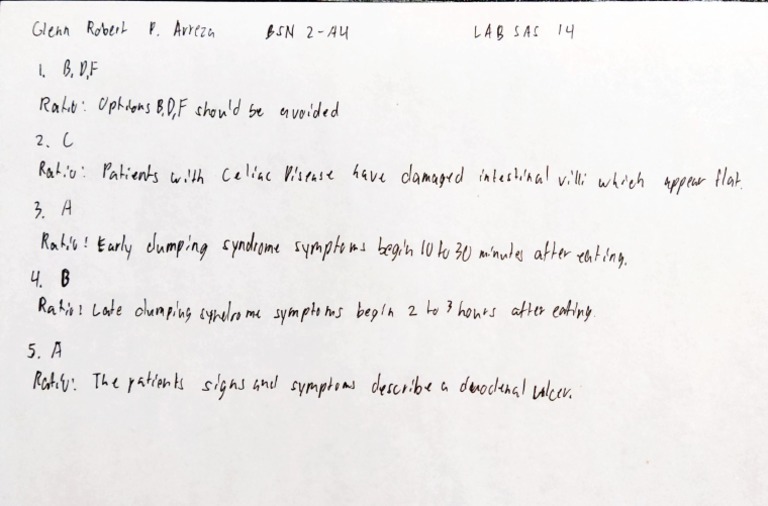 Glenn Robert P. Arreza BSN 2-A4 LAB SAS 14
1. B, D, F
Ratio: Options B,D,F should be avoided
2. C
Ratio: Patients with Celiac Disease have damaged intestinal villi which appear flat.
3. A
Ratio: Early dumping syndrome symptoms begin 10 to 30 minutes after eating.
4. B
Ratio: Late dumping syndrome symptoms begin 2 to 3 hours after eating.
5. A
Ratio: The patients signs and symptoms describe a duodenal ulcer.